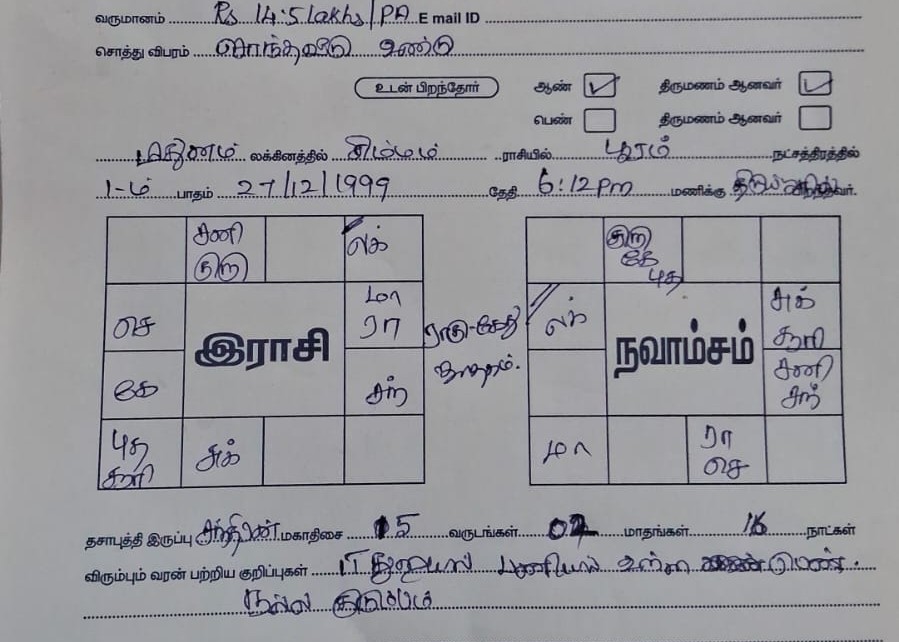 வருமானம் Rs 14.5 lakhs/PA E mail ID
சொத்து விபரம் சொந்தவீடு உண்டு
உடன் பிறந்தோர் ஆண் ✓ திருமணம் ஆனவர் ✓
பெண் திருமணம் ஆனவர்
மிதுனம் லக்கினத்தில் சிம்மம் ராசியில் பூரம் நட்சத்திரத்தில்
1-ம் பாதம் 27/12/1999 தேதி 6:12 Pm மணிக்கு
சனி குரு லக்
செ மா ரா
இராசி
கே சந்
புத சூரி சுக்
ராகு-கேது
தோசம்.
குரு கே புத
லக் சுக் சூரி
நவாம்சம்
சனி சந்
மா ரா செ
தசாபுத்தி இருப்பு மகாதிசை 15 வருடங்கள் 02 மாதங்கள் 16 நாட்கள்
விரும்பும் வரன் பற்றிய குறிப்புகள் IT பணியில் உள்ள
நல்ல குடும்பம்